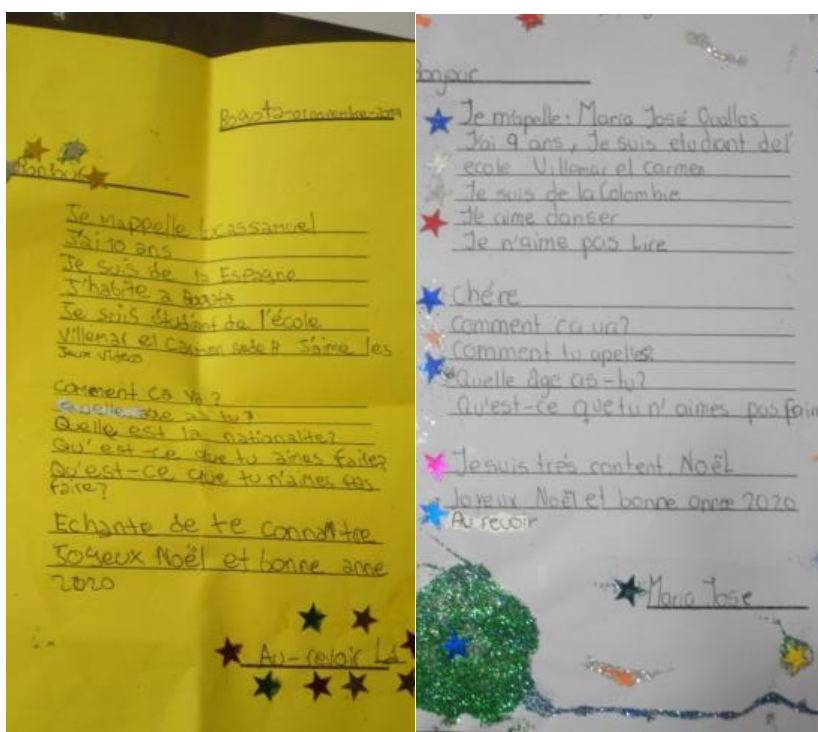 Bogotá-01 novembre-2019
Bonjour
Je mappelle
J'ai 10 ans
Je suis de la Espagne
J'habite a Bogotá
Je suis étudiant de l'école
Villemar el Carmen sede B J'aime les
Jeux videos
Comment ca va?
Quelle age as tu?
Quelle est la nationalite?
Qu'est-ce que tu aimes faire?
Qu'est-ce que tu n'aimes pas
faire?
Echante de te connaître
Joyeux Noël et bonne anne
2020
Au-revoir
Bonjour
Je m'apelle: Maria José
J'ai 9 ans, Je suis etudiant del'
ecole Villemar el carmen
Je suis de la Colombie
Je aime danser
Je n'aime pas Lire
chére
Comment ca va?
comment tu apelles?
Quelle âge as-tu?
Qu'est-ce que tu n'aimes pas fair
Je suis trés content Noël
Joyeux Noël et bonne anne 2020
Au revoir
Maria Jose